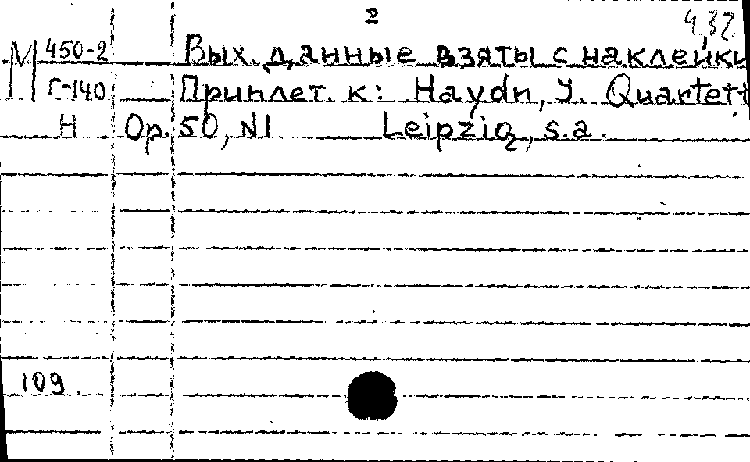 2 4,32
М 450-2 Вых. данные взяты с наклейки
Г-140 Приплет. к: Haydn, J. Quartett
Н Op. 50, N1 Leipzig, s.a.
109.